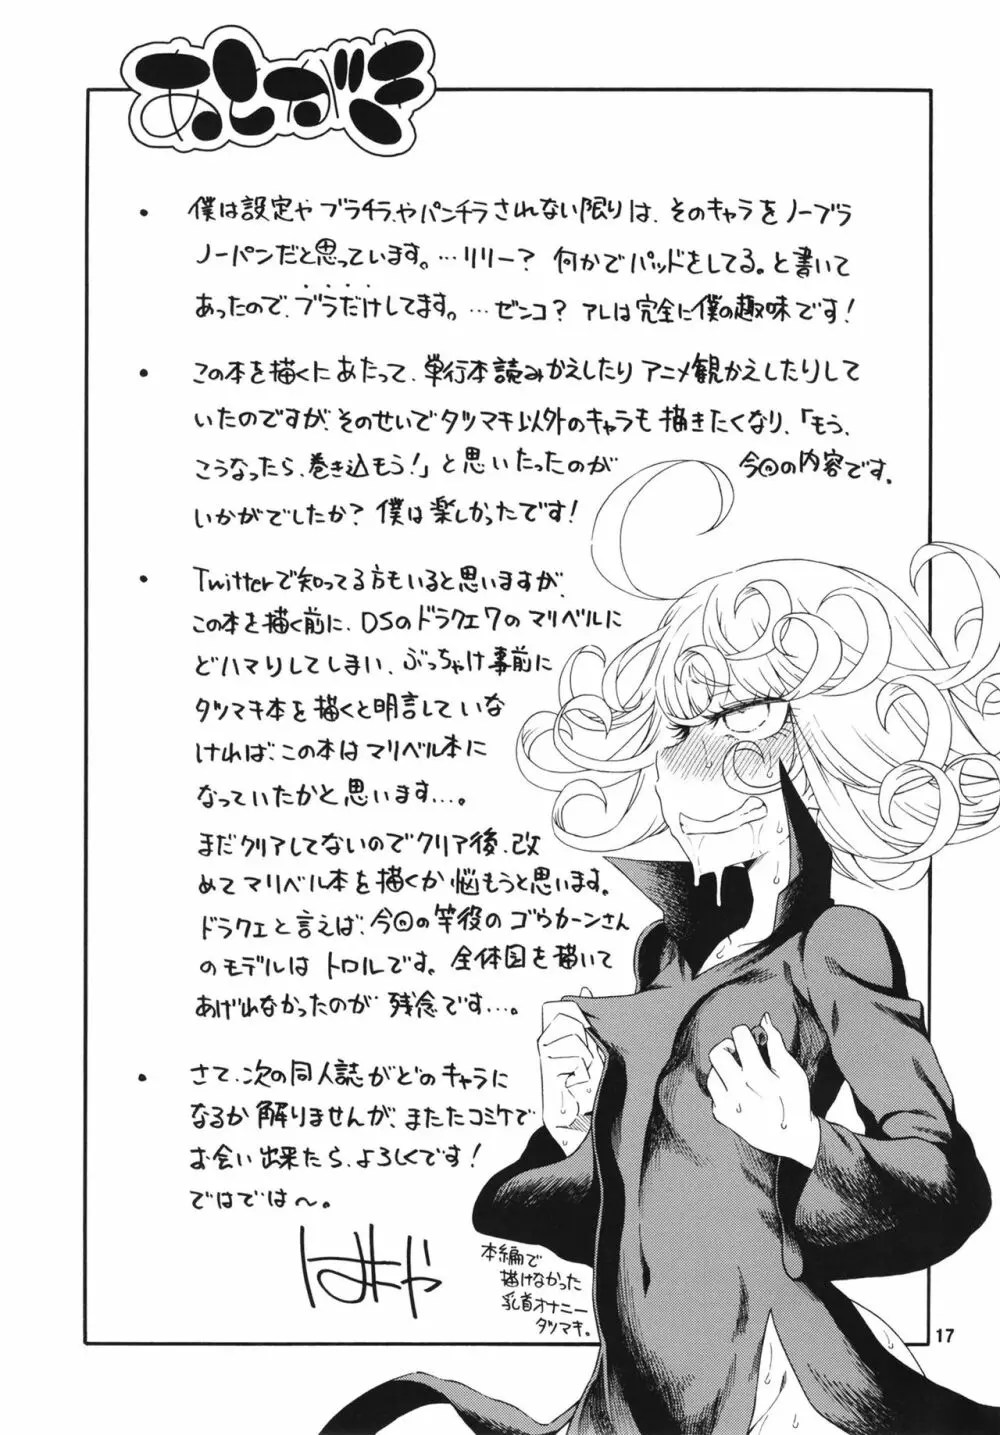 あとがき
・僕は設定やブラチラやパンチラされない限りは、そのキャラをノーブラ
ノーパンだと思っています。…リリー？何かでパッドをしてる。と書いて
あったので、ブラだけしてます。…ゼンコ？アレは完全に僕の趣味です！
・この本を描くにあたって、単行本読みかえしたりアニメ観かえしたりして
いたのですが、そのせいでタツマキ以外のキャラも描きたくなり、「もう、
こうなったら、巻き込もう！」と思いたったのが 今回の内容です。
いかがでしたか？僕は楽しかったです！
・Twitterで知ってる方もいると思いますが、
この本を描く前に、DSのドラクエ7のマリベルに
どハマりしてしまい、ぶっちゃけ事前に
タツマキ本を描くと明言していな
ければ、この本はマリベル本に
なっていたかと思います…。
まだクリアしてないのでクリア後、改
めてマリベル本を描くか悩もうと思います。
ドラクエと言えば、今回の竿役のゴウカーンさん
のモデルはトロルです。全体図を描いて
あげれなかったのが残念です…。
・さて、次の同人誌がどのキャラに
なるか解りませんが、またたコミケで
お会い出来たら、よろしくです！
ではでは〜。
はまや
本編で
描けなかった
乳首オナニー
タツマキ。
17